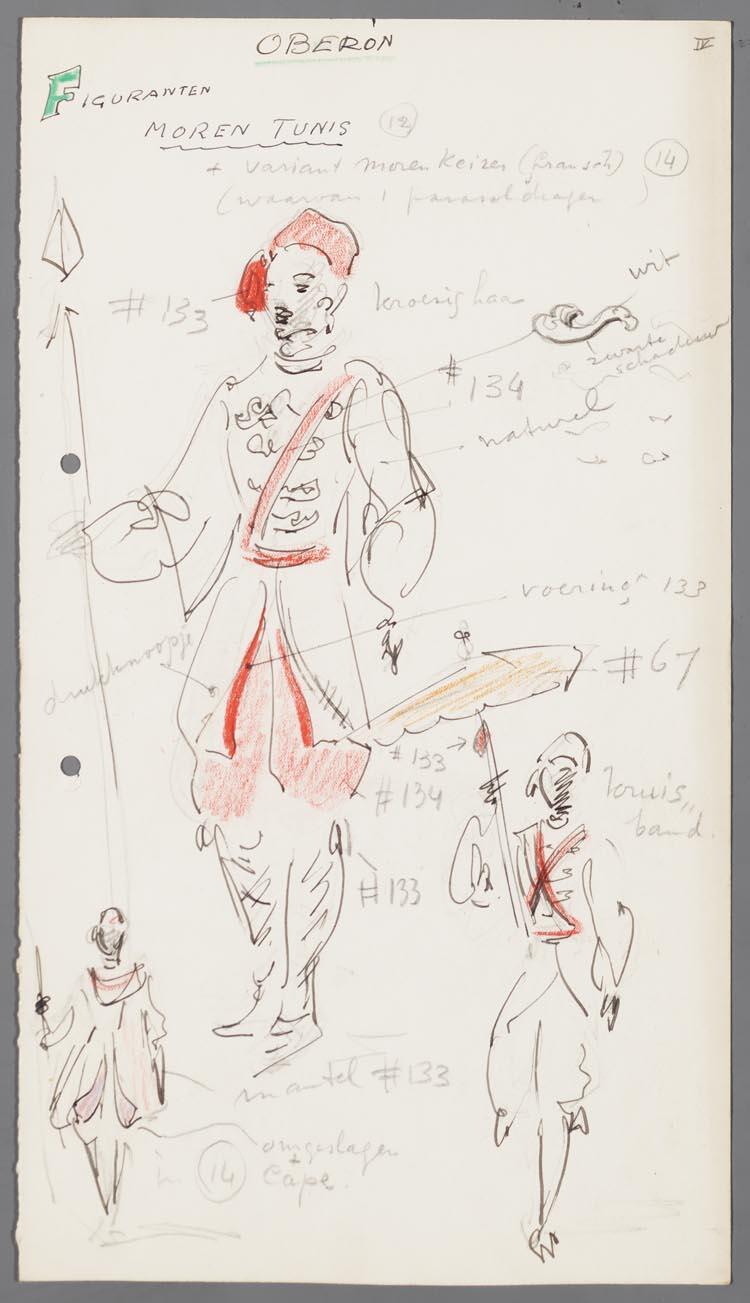 OBERON
IV
FIGURANTEN
MOREN TUNIS 12
+ variant moren Keizer (fransch) 14
(waarvan 1 parasoldrager )
wit
# 133
kroeshaar
zwarte
schaduw
# 134
naturel
voering 133
drukknoopje
# 67
# 133
# 134
kruis,,
band.
# 133
mantel # 133
omgeslagen
in 14 + Cape.